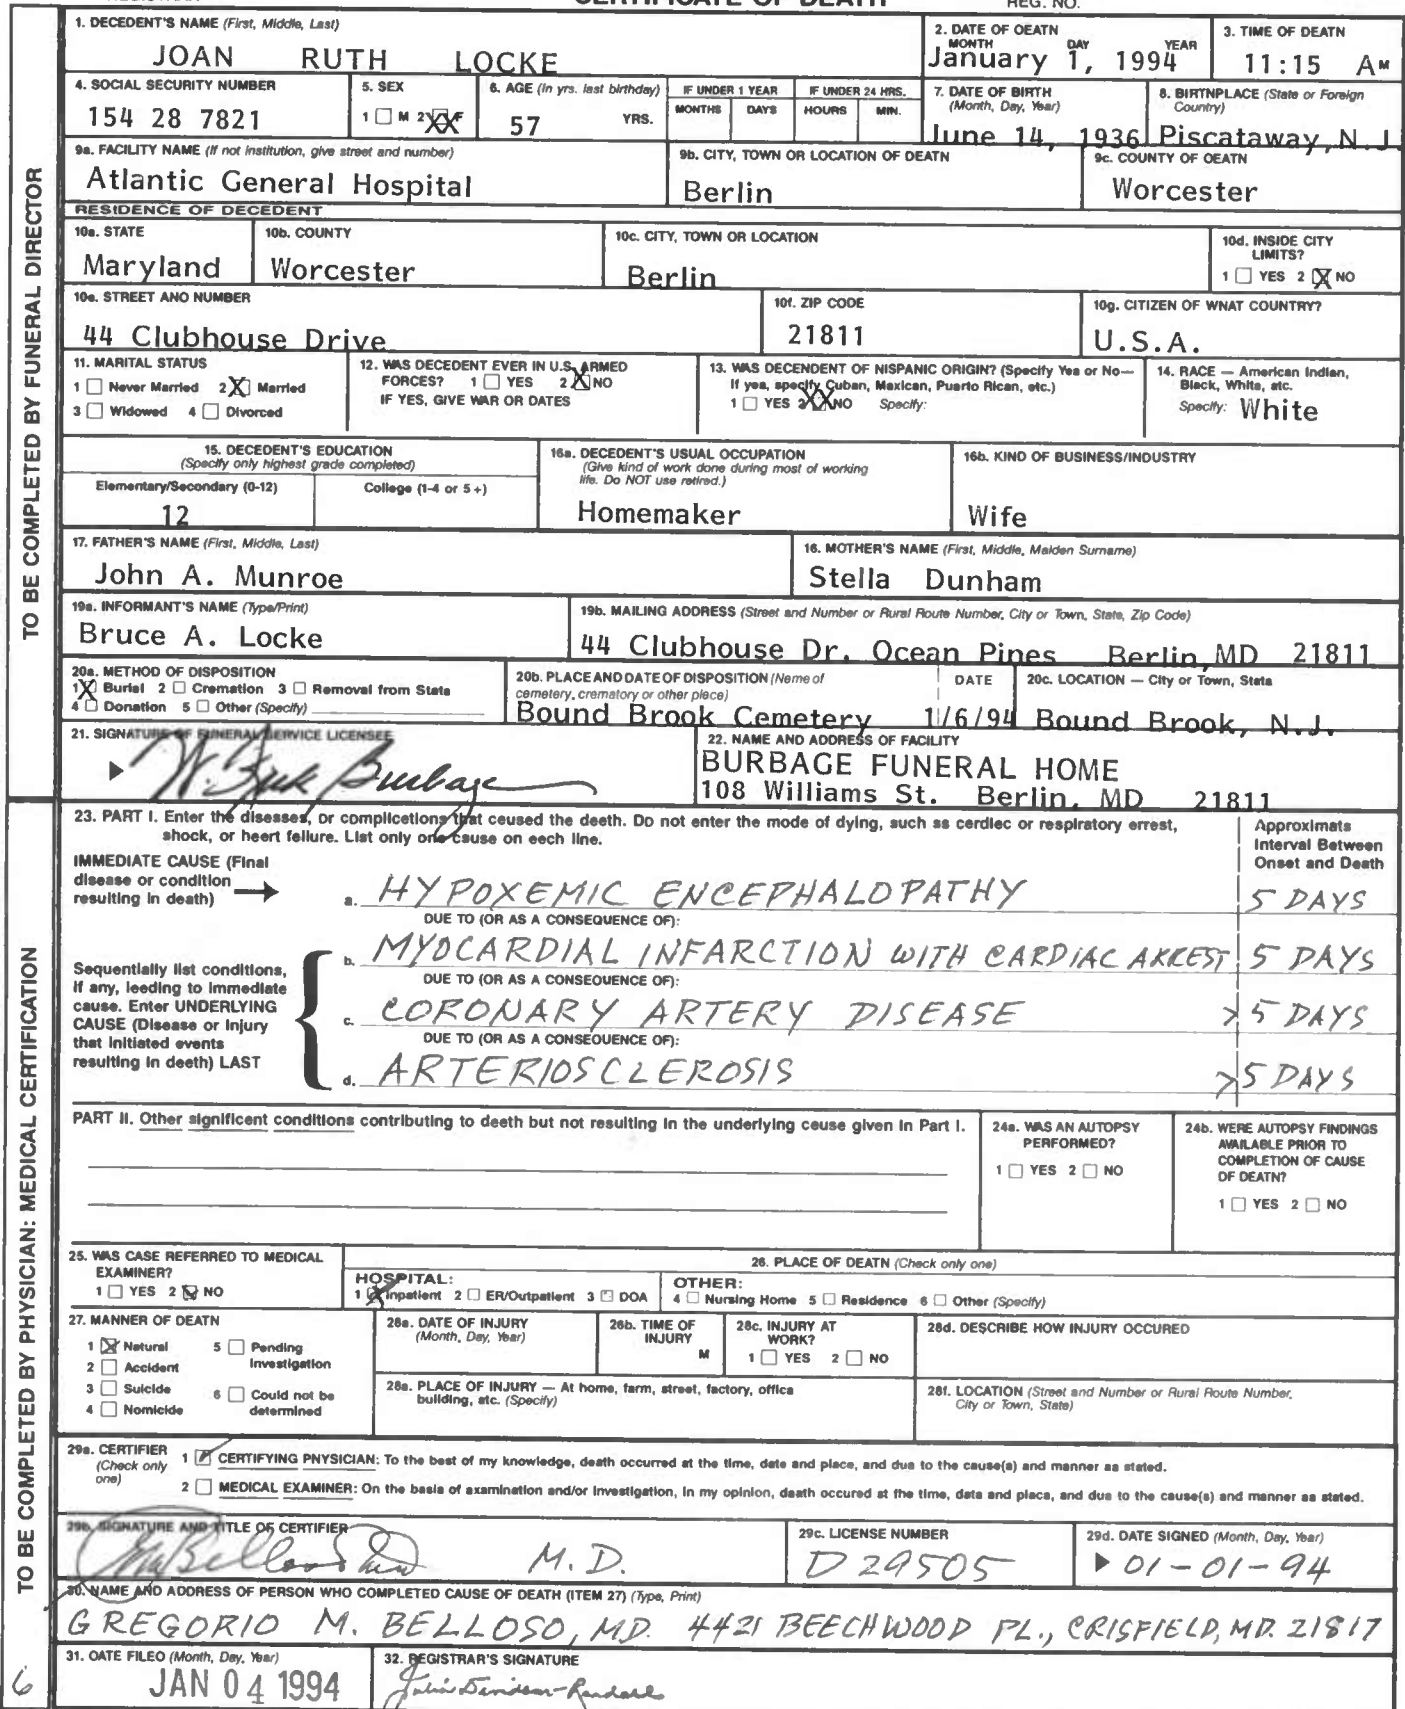 CERTIFICATE OF DEATH
REG. NO.
TO BE COMPLETED BY FUNERAL DIRECTOR
1. DECEDENT'S NAME (First, Middle, Last)
JOAN RUTH LOCKE
2. DATE OF OEATN
MONTH DAY YEAR
January 1, 1994
3. TIME OF DEATH
11:15 AM
4. SOCIAL SECURITY NUMBER
154 28 7821
5. SEX
1 ☐ M 2 XX F
6. AGE (In yrs. last birthday)
57 YRS.
IF UNDER 1 YEAR
MONTHS DAYS
IF UNDER 24 HRS.
HOURS MIN.
7. DATE OF BIRTH
(Month, Day, Year)
June 14, 1936
8. BIRTNPLACE (State or Foreign
Country)
Piscataway, N.J.
9a. FACILITY NAME (If not institution, give street and number)
Atlantic General Hospital
9b. CITY, TOWN OR LOCATION OF DEATH
Berlin
9c. COUNTY OF OEATN
Worcester
RESIDENCE OF DECEDENT
10a. STATE
Maryland
10b. COUNTY
Worcester
10c. CITY, TOWN OR LOCATION
Berlin
10d. INSIDE CITY
LIMITS?
1 ☐ YES 2 ☒ NO
10e. STREET ANO NUMBER
44 Clubhouse Drive
10f. ZIP CODE
21811
10g. CITIZEN OF WNAT COUNTRY?
U.S.A.
11. MARITAL STATUS
1 ☐ Never Married 2 ☒ Married
3 ☐ Widowed 4 ☐ Divorced
12. WAS DECEDENT EVER IN U.S. ARMED
FORCES? 1 ☐ YES 2 ☒ NO
IF YES, GIVE WAR OR DATES
13. WAS DECENDENT OF NISPANIC ORIGIN? (Specify Yes or No—
If yes, specify Cuban, Mexican, Puerto Rican, etc.)
1 ☐ YES 2 XX NO Specify:
14. RACE — American Indian,
Black, White, etc.
Specify: White
15. DECEDENT'S EDUCATION
(Specify only highest grade completed)
Elementary/Secondary (0-12) College (1-4 or 5+)
12
16a. DECEDENT'S USUAL OCCUPATION
(Give kind of work done during most of working
life. Do NOT use retired.)
Homemaker
16b. KIND OF BUSINESS/INDUSTRY
Wife
17. FATHER'S NAME (First, Middle, Last)
John A. Munroe
16. MOTHER'S NAME (First, Middle, Maiden Surname)
Stella Dunham
19a. INFORMANT'S NAME (Type/Print)
Bruce A. Locke
19b. MAILING ADDRESS (Street and Number or Rural Route Number, City or Town, State, Zip Code)
44 Clubhouse Dr. Ocean Pines Berlin, MD 21811
20a. METHOD OF DISPOSITION
1 ☒ Burial 2 ☐ Cremation 3 ☐ Removal from State
4 ☐ Donation 5 ☐ Other (Specify)
20b. PLACE AND DATE OF DISPOSITION (Name of
cemetery, crematory or other place)
Bound Brook Cemetery
DATE
1/6/94
20c. LOCATION — City or Town, State
Bound Brook, N.J.
21. SIGNATURE OF FUNERAL SERVICE LICENSEE
W. Burbage
22. NAME AND ADDRESS OF FACILITY
BURBAGE FUNERAL HOME
108 Williams St. Berlin, MD 21811
TO BE COMPLETED BY PHYSICIAN: MEDICAL CERTIFICATION
23. PART I. Enter the diseases, or complications that ceused the deeth. Do not enter the mode of dying, such as cerdiec or respiratory errest,
shock, or heert feilure. List only one cause on eech line.
Approximats
Interval Between
Onset and Death
IMMEDIATE CAUSE (Final
disease or condition
resulting in death)
a. HYPOXEMIC ENCEPHALOPATHY 5 DAYS
DUE TO (OR AS A CONSEQUENCE OF):
b. MYOCARDIAL INFARCTION WITH CARDIAC ARREST 5 DAYS
DUE TO (OR AS A CONSEQUENCE OF):
c. CORONARY ARTERY DISEASE >5 DAYS
DUE TO (OR AS A CONSEOUENCE OF):
d. ARTERIOSCLEROSIS >5 DAYS
Sequentially list conditions,
if any, leeding to immediate
cause. Enter UNDERLYING
CAUSE (Disease or injury
that initiated events
resulting in deeth) LAST
PART II. Other significent conditions contributing to death but not resulting in the underlying ceuse given in Part I.
24a. WAS AN AUTOPSY
PERFORMED?
1 ☐ YES 2 ☐ NO
24b. WERE AUTOPSY FINDINGS
AVAILABLE PRIOR TO
COMPLETION OF CAUSE
OF DEATN?
1 ☐ YES 2 ☐ NO
25. WAS CASE REFERRED TO MEDICAL
EXAMINER?
1 ☐ YES 2 ☒ NO
26. PLACE OF DEATH (Check only one)
HOSPITAL:
1 ☒ Inpatient 2 ☐ ER/Outpatient 3 ☐ DOA
OTHER:
4 ☐ Nursing Home 5 ☐ Residence 6 ☐ Other (Specify)
27. MANNER OF DEATN
1 ☒ Natural 5 ☐ Pending
Investigation
2 ☐ Accident
3 ☐ Suicide 6 ☐ Could not be
determined
4 ☐ Nomicide
28a. DATE OF INJURY
(Month, Day, Year)
26b. TIME OF
INJURY
M
28c. INJURY AT
WORK?
1 ☐ YES 2 ☐ NO
28d. DESCRIBE HOW INJURY OCCURED
28a. PLACE OF INJURY — At home, farm, street, factory, office
building, atc. (Specify)
281. LOCATION (Street and Number or Rural Route Number,
City or Town, State)
29a. CERTIFIER
(Check only
one)
1 ☒ CERTIFYING PNYSICIAN: To the best of my knowledge, death occurred at the time, date and place, and due to the cause(s) and manner as stated.
2 ☐ MEDICAL EXAMINER: On the basis of examination and/or investigation, in my opinion, death occured at the time, data and placa, and dus to the cause(s) and manner as stated.
29b. SIGNATURE AND TITLE OF CERTIFIER
M.D.
29c. LICENSE NUMBER
D29505
29d. DATE SIGNED (Month, Day, Year)
01-01-94
30. NAME AND ADDRESS OF PERSON WHO COMPLETED CAUSE OF DEATH (ITEM 27) (Type, Print)
GREGORIO M. BELLOSO, MD. 4421 BEECHWOOD PL., CRISFIELD, MD. 21817
31. OATE FILEO (Month, Day, Year)
JAN 04 1994
32. REGISTRAR'S SIGNATURE
Julia Davidson-Randall
6